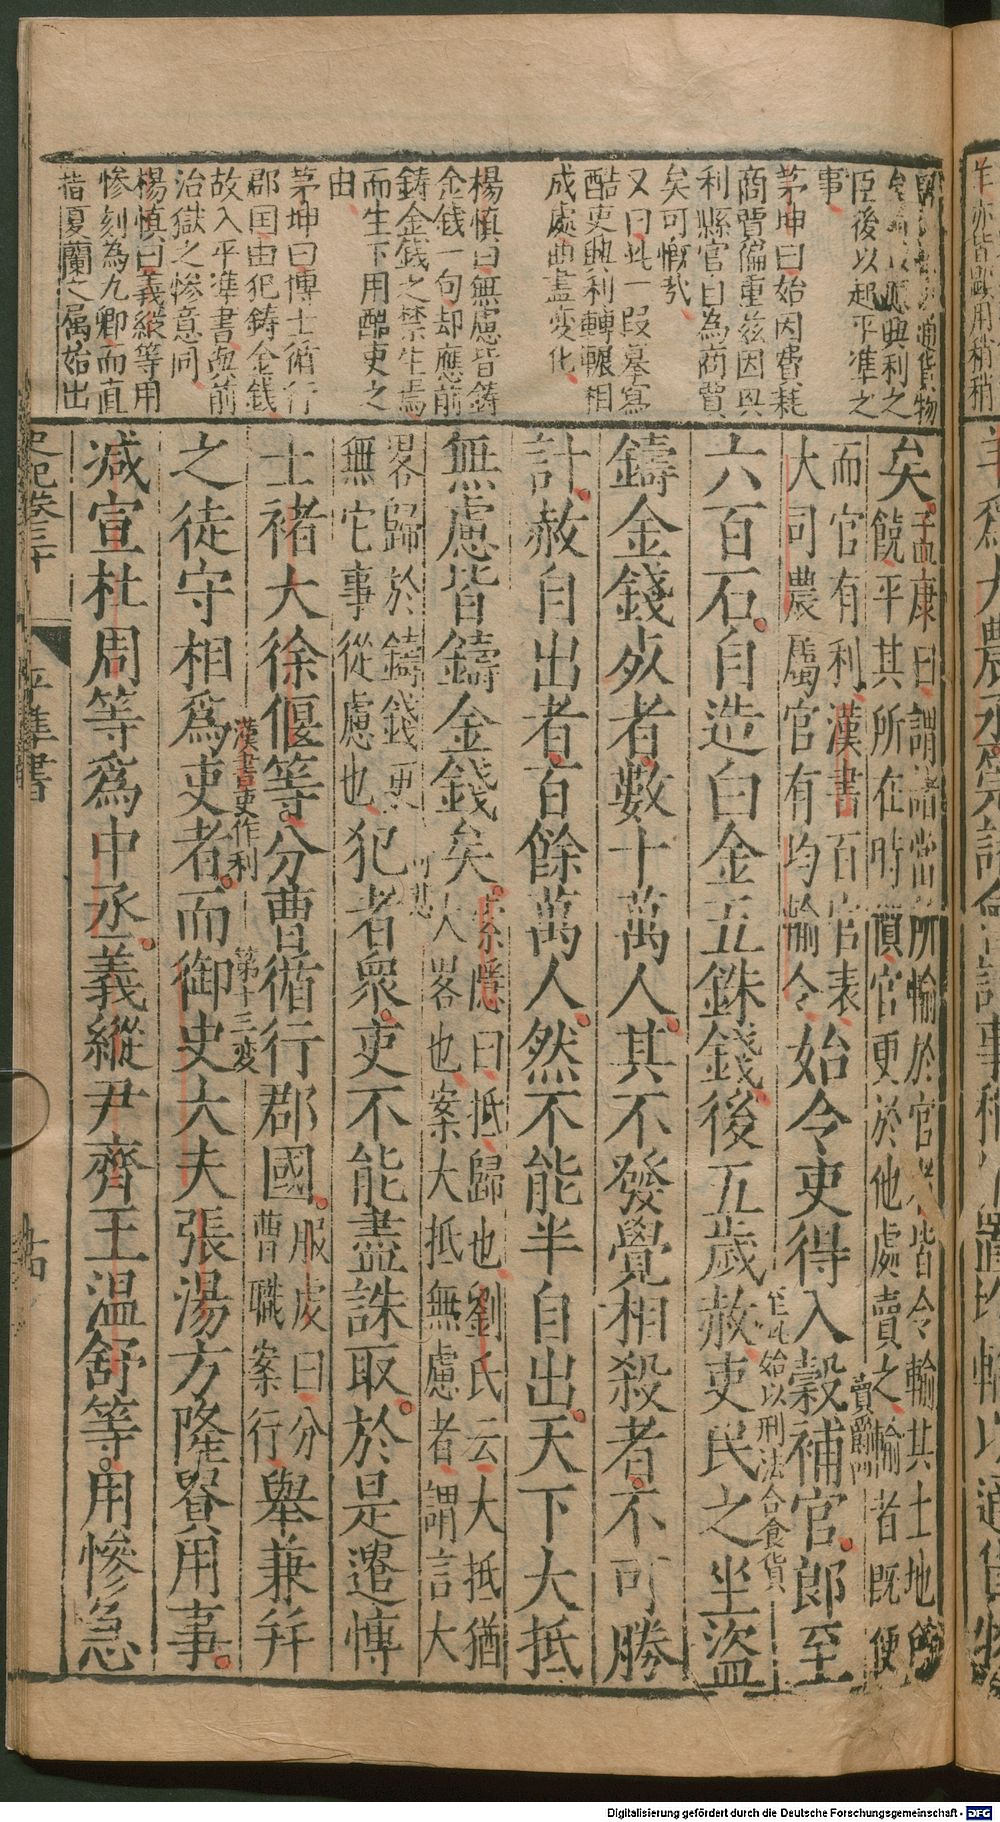 通貨物
典利之
臣後以起平準之
事
茅坤曰始因費耗
商賈偏重茲因與
利縣官自為商賈
矣可慨哉
又曰此一段摹寫
酷吏興利轉輾相
成處曲盡變化
楊慎曰無慮皆鑄
金錢一句却應前
鑄金錢之禁生焉
而生下用酷吏之
由
茅坤曰博士循行
郡国由犯鑄金錢
故入平準書與前
治獄之慘意同
楊慎曰義縱等用
慘刻為九卿而直
指夏蘭之属始出
矣孟康曰謂諸當所輸於官者皆令輸其土地所
饒平其所在時價官更於他處賣之輸者既便
而官有利漢書百官表
大司農屬官有均輸令始令吏得入穀補官郎至
賣爵
六百石自造白金五銖錢後五歲赦吏民之坐盜
始以刑法合食貨
鑄金錢死者數十萬人其不發覺相殺者不可勝
計赦自出者百餘萬人然不能半自出天下大抵
無慮皆鑄金錢矣索隱曰抵歸也劉氏云大抵猶
大畧也案大抵無慮者謂言大
畧歸於鑄錢更
無它事從慮也犯者衆吏不能盡誅取於是遣博
士褚大徐偃等分曹循行郡國服虔曰分
曹職案行舉兼并
漢書吏作利
第十三變
之徒守相爲吏者而御史大夫張湯方隆貴用事
減宣杜周等爲中丞義縱尹齊王温舒等用慘急
史記卷三十
平準書
十四
Digitalisierung gefördert durch die Deutsche Forschungsgemeinschaft - DFG